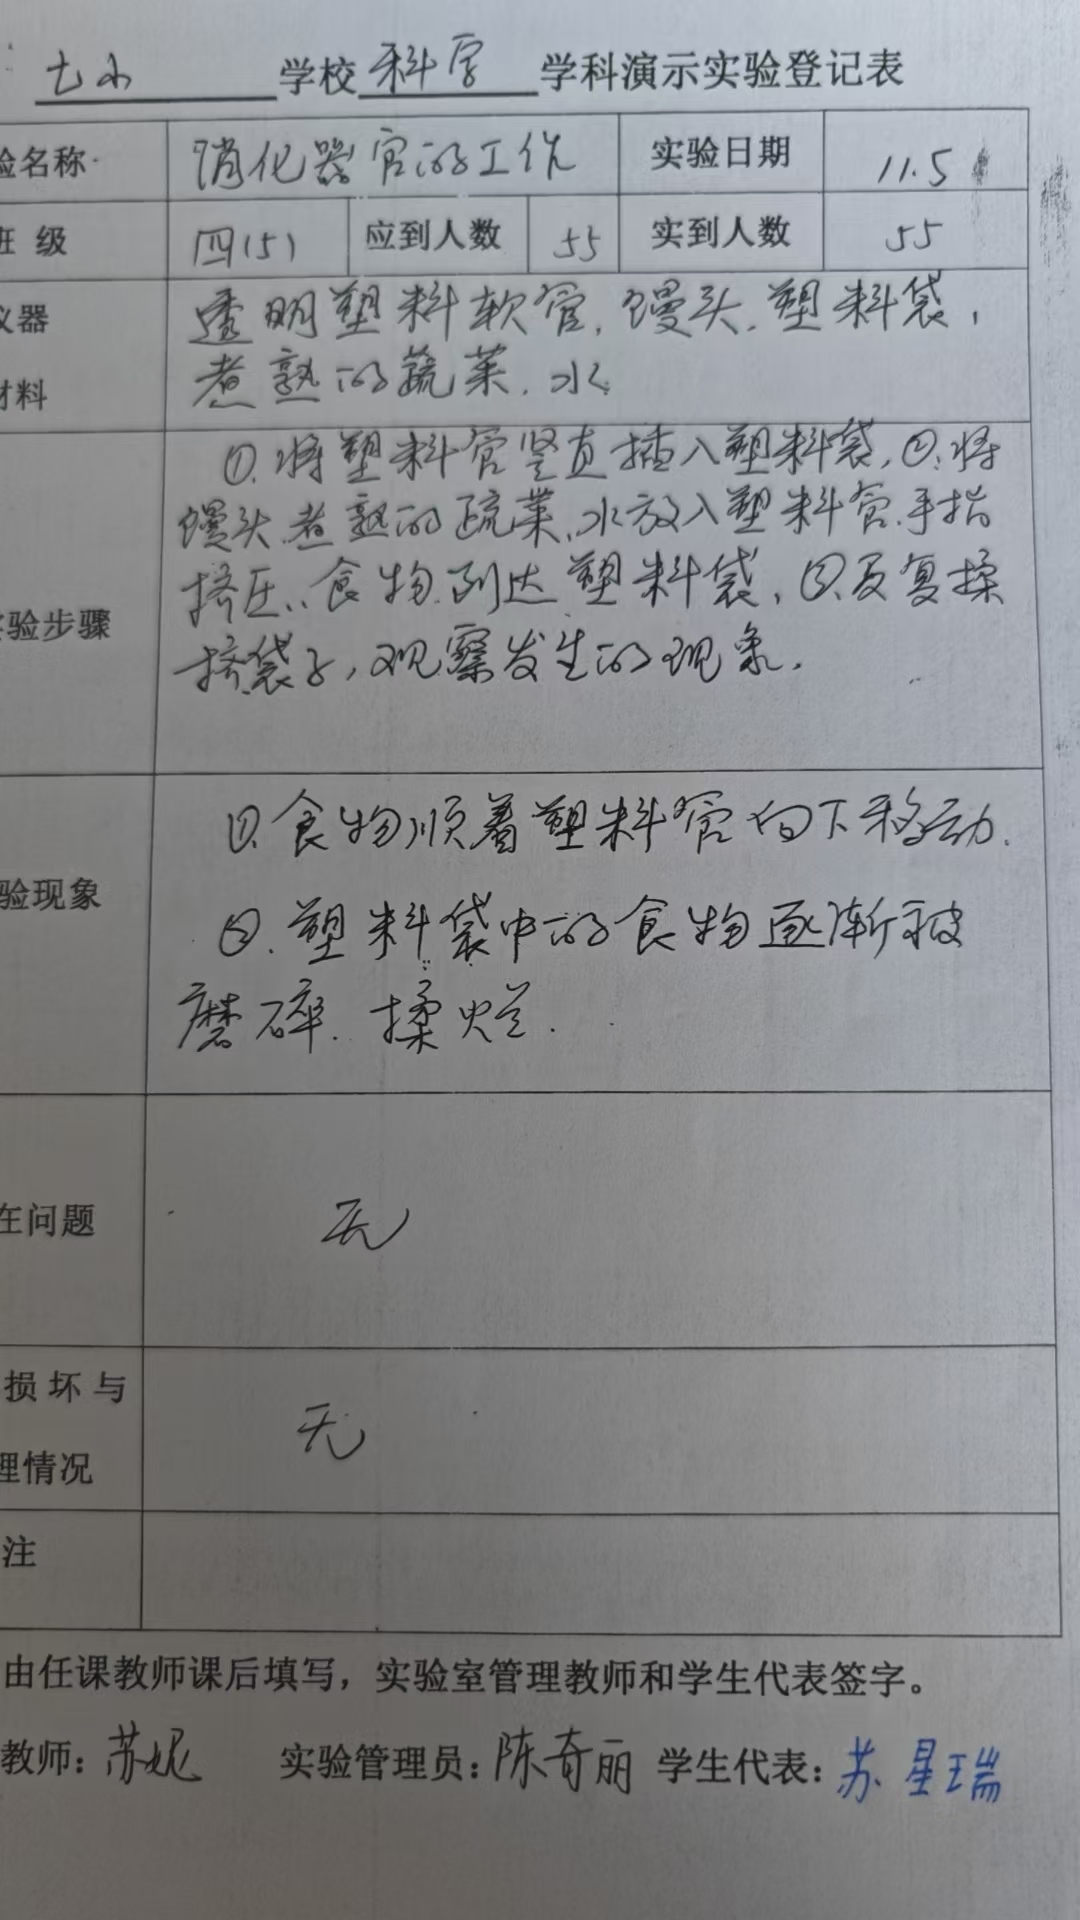 七小 学校 科学 学科演示实验登记表
验名称 消化器官的工作 实验日期 11.5
班 级 四(5) 应到人数 55 实到人数 55
仪器 透明塑料软管, 馒头, 塑料袋,
材料 煮熟的蔬菜, 水
①. 将塑料管竖直插入塑料袋, ②, 将
馒头, 煮熟的蔬菜, 水放入塑料管, 手指
挤压, 食物到达塑料袋, ③, 反复揉
实验步骤
挤袋子, 观察发生的现象.
①. 食物顺着塑料管向下移动.
验现象
②. 塑料袋中的食物逐渐被
磨碎. 揉烂.
在问题 无
损坏与
无
理情况
注
由任课教师课后填写，实验室管理教师和学生代表签字。
教师: 苏妮 实验管理员: 陈奇丽 学生代表: 苏星瑞